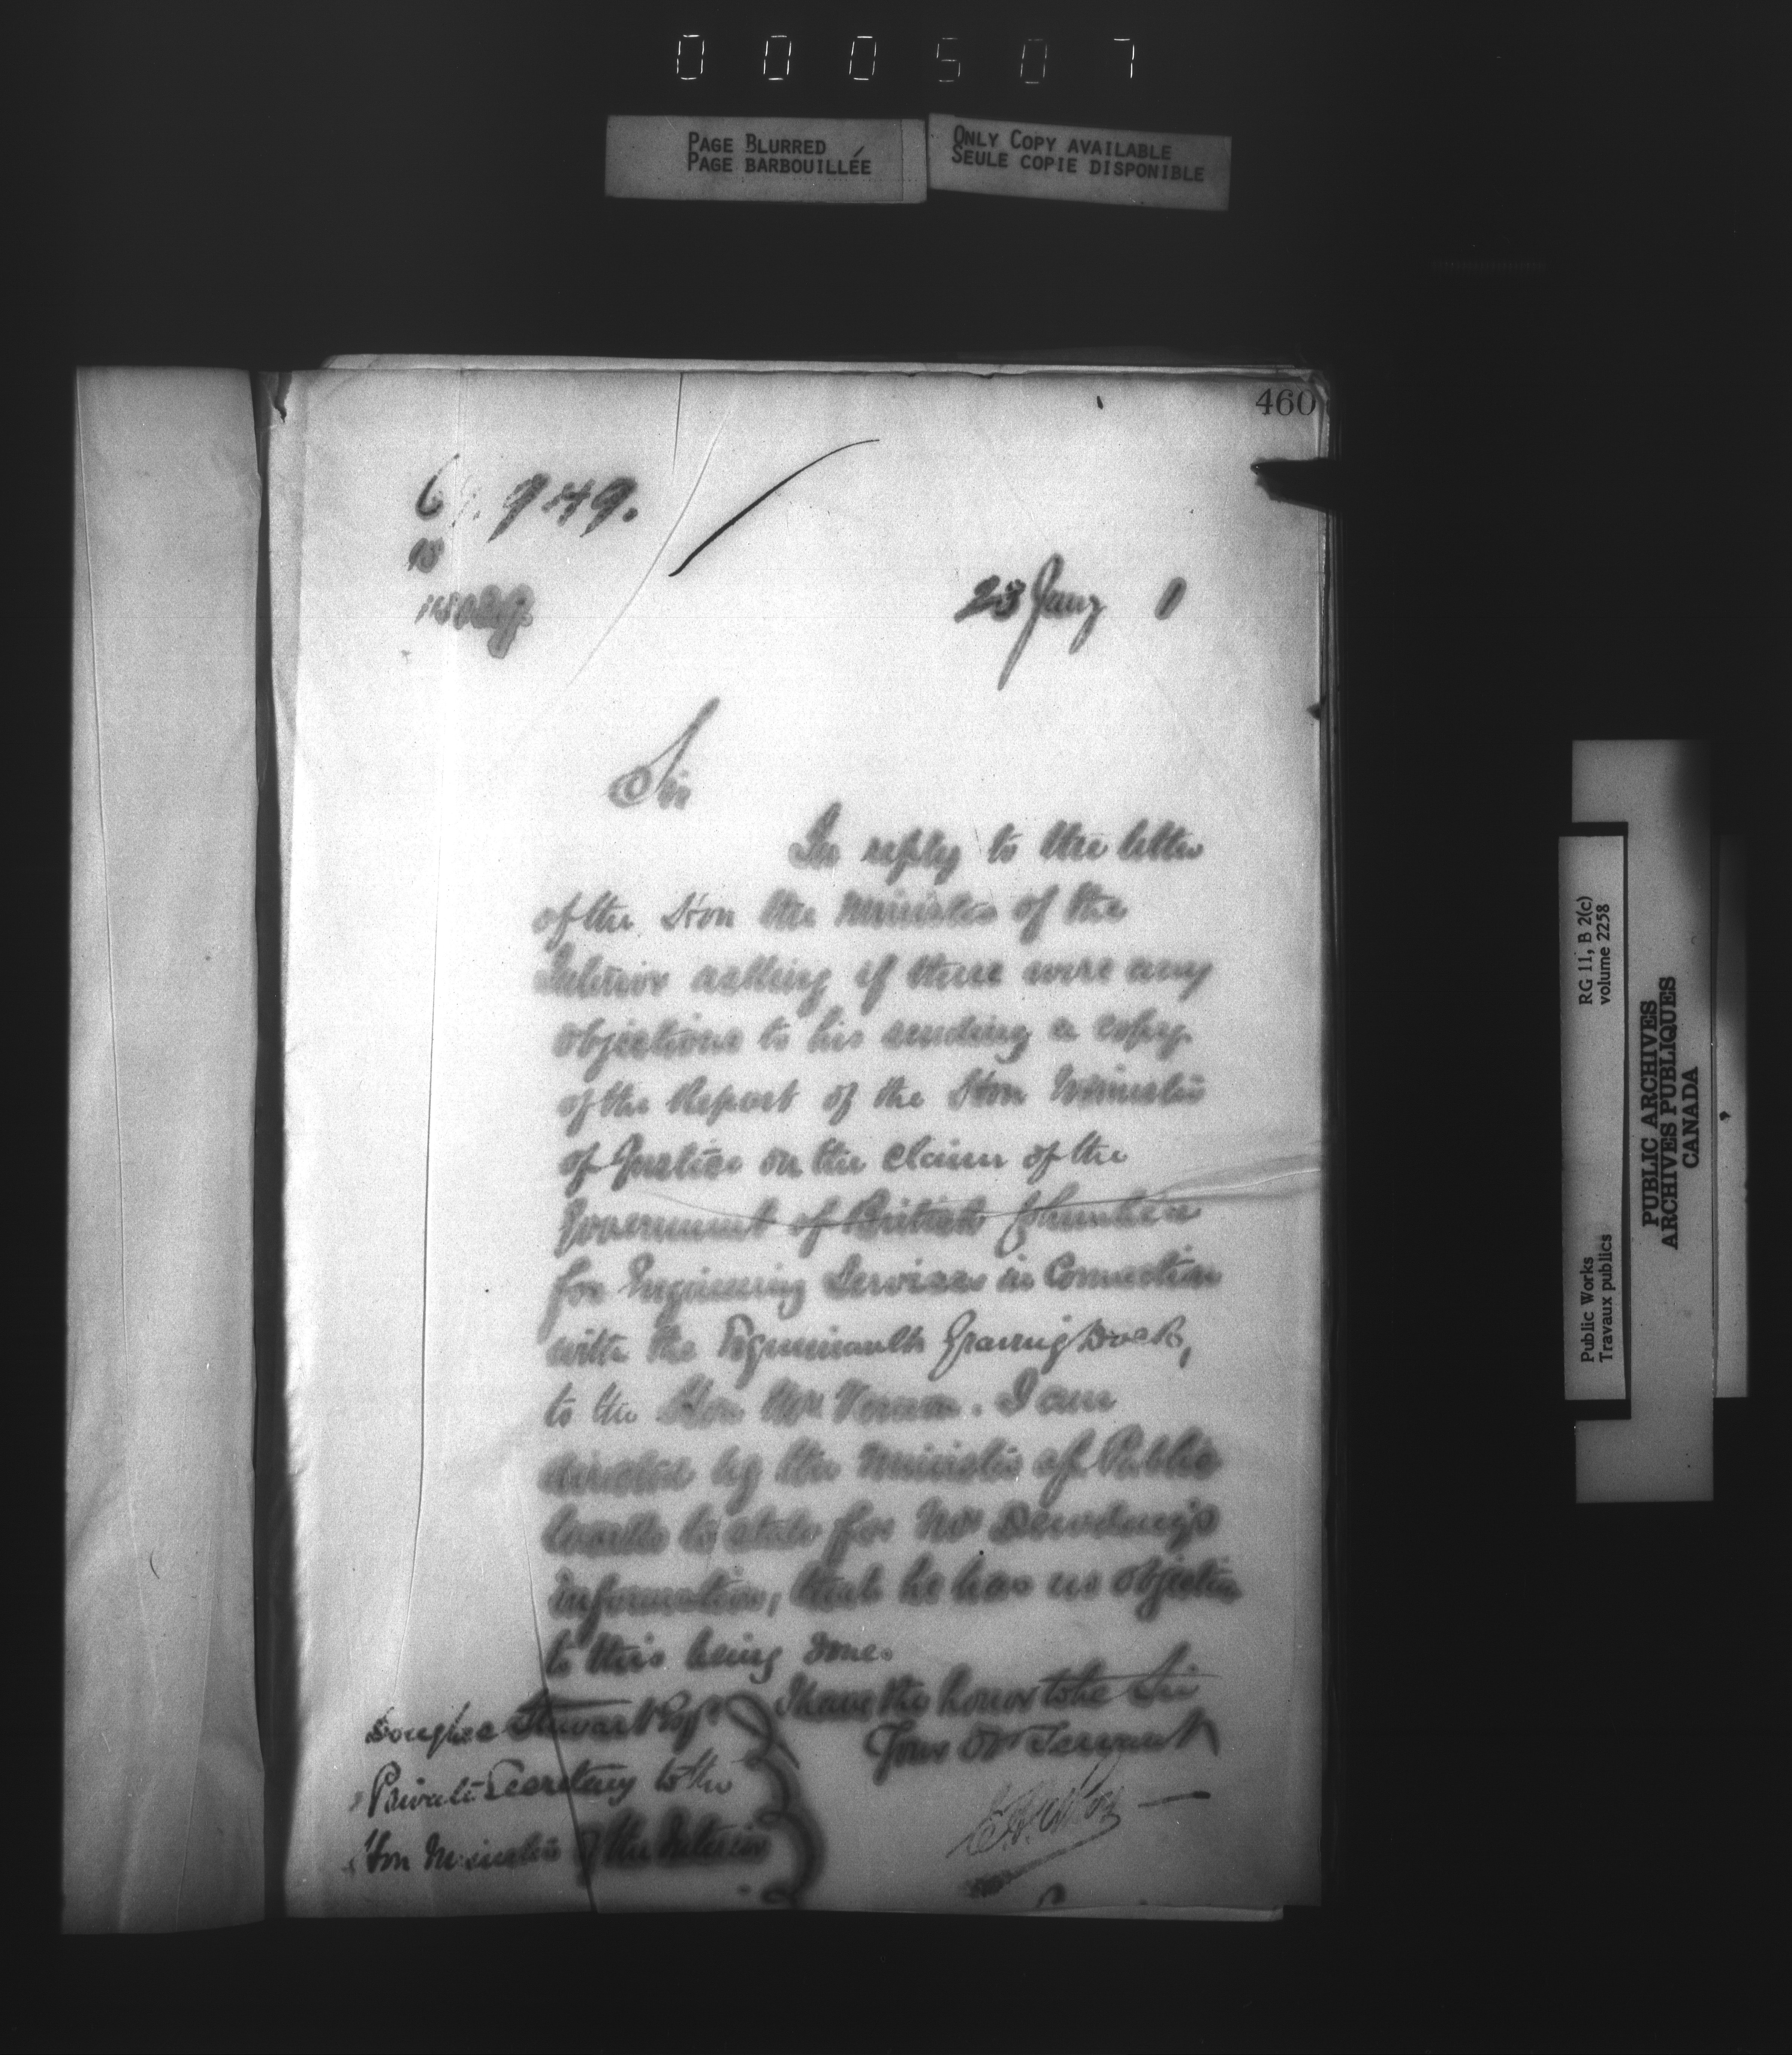 000507
PAGE BLURRED
PAGE BARBOUILLÉE
ONLY COPY AVAILABLE
SEULE COPIE DISPONIBLE
460
949.
23 Jany 1
Sir
In reply to the letter
of the Hon the Minister of the
Interior asking if there were any
objections to his sending a copy
of the Report of the Hon Minister
of Justice on the claim of the
Government of British Columbia
for Engineering Services in Connection
with the Esquimault Graving Dock,
to the Hon Mr Vernon. I am
directed by the Minister of Public
Works to state for Mr Dewdney's
information, that he has no objection
to this being done.
I have the honor to be Sir
Your Ob Servant
Douglas Stewart Esqr
Private Secretary to the
Hon Minister of the Interior
RG 11, B 2(c)
volume 2258
Public Works
Travaux publics
PUBLIC ARCHIVES
ARCHIVES PUBLIQUES
CANADA